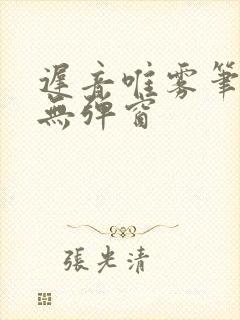 遲音唯雾筆
無弹窗
張光清